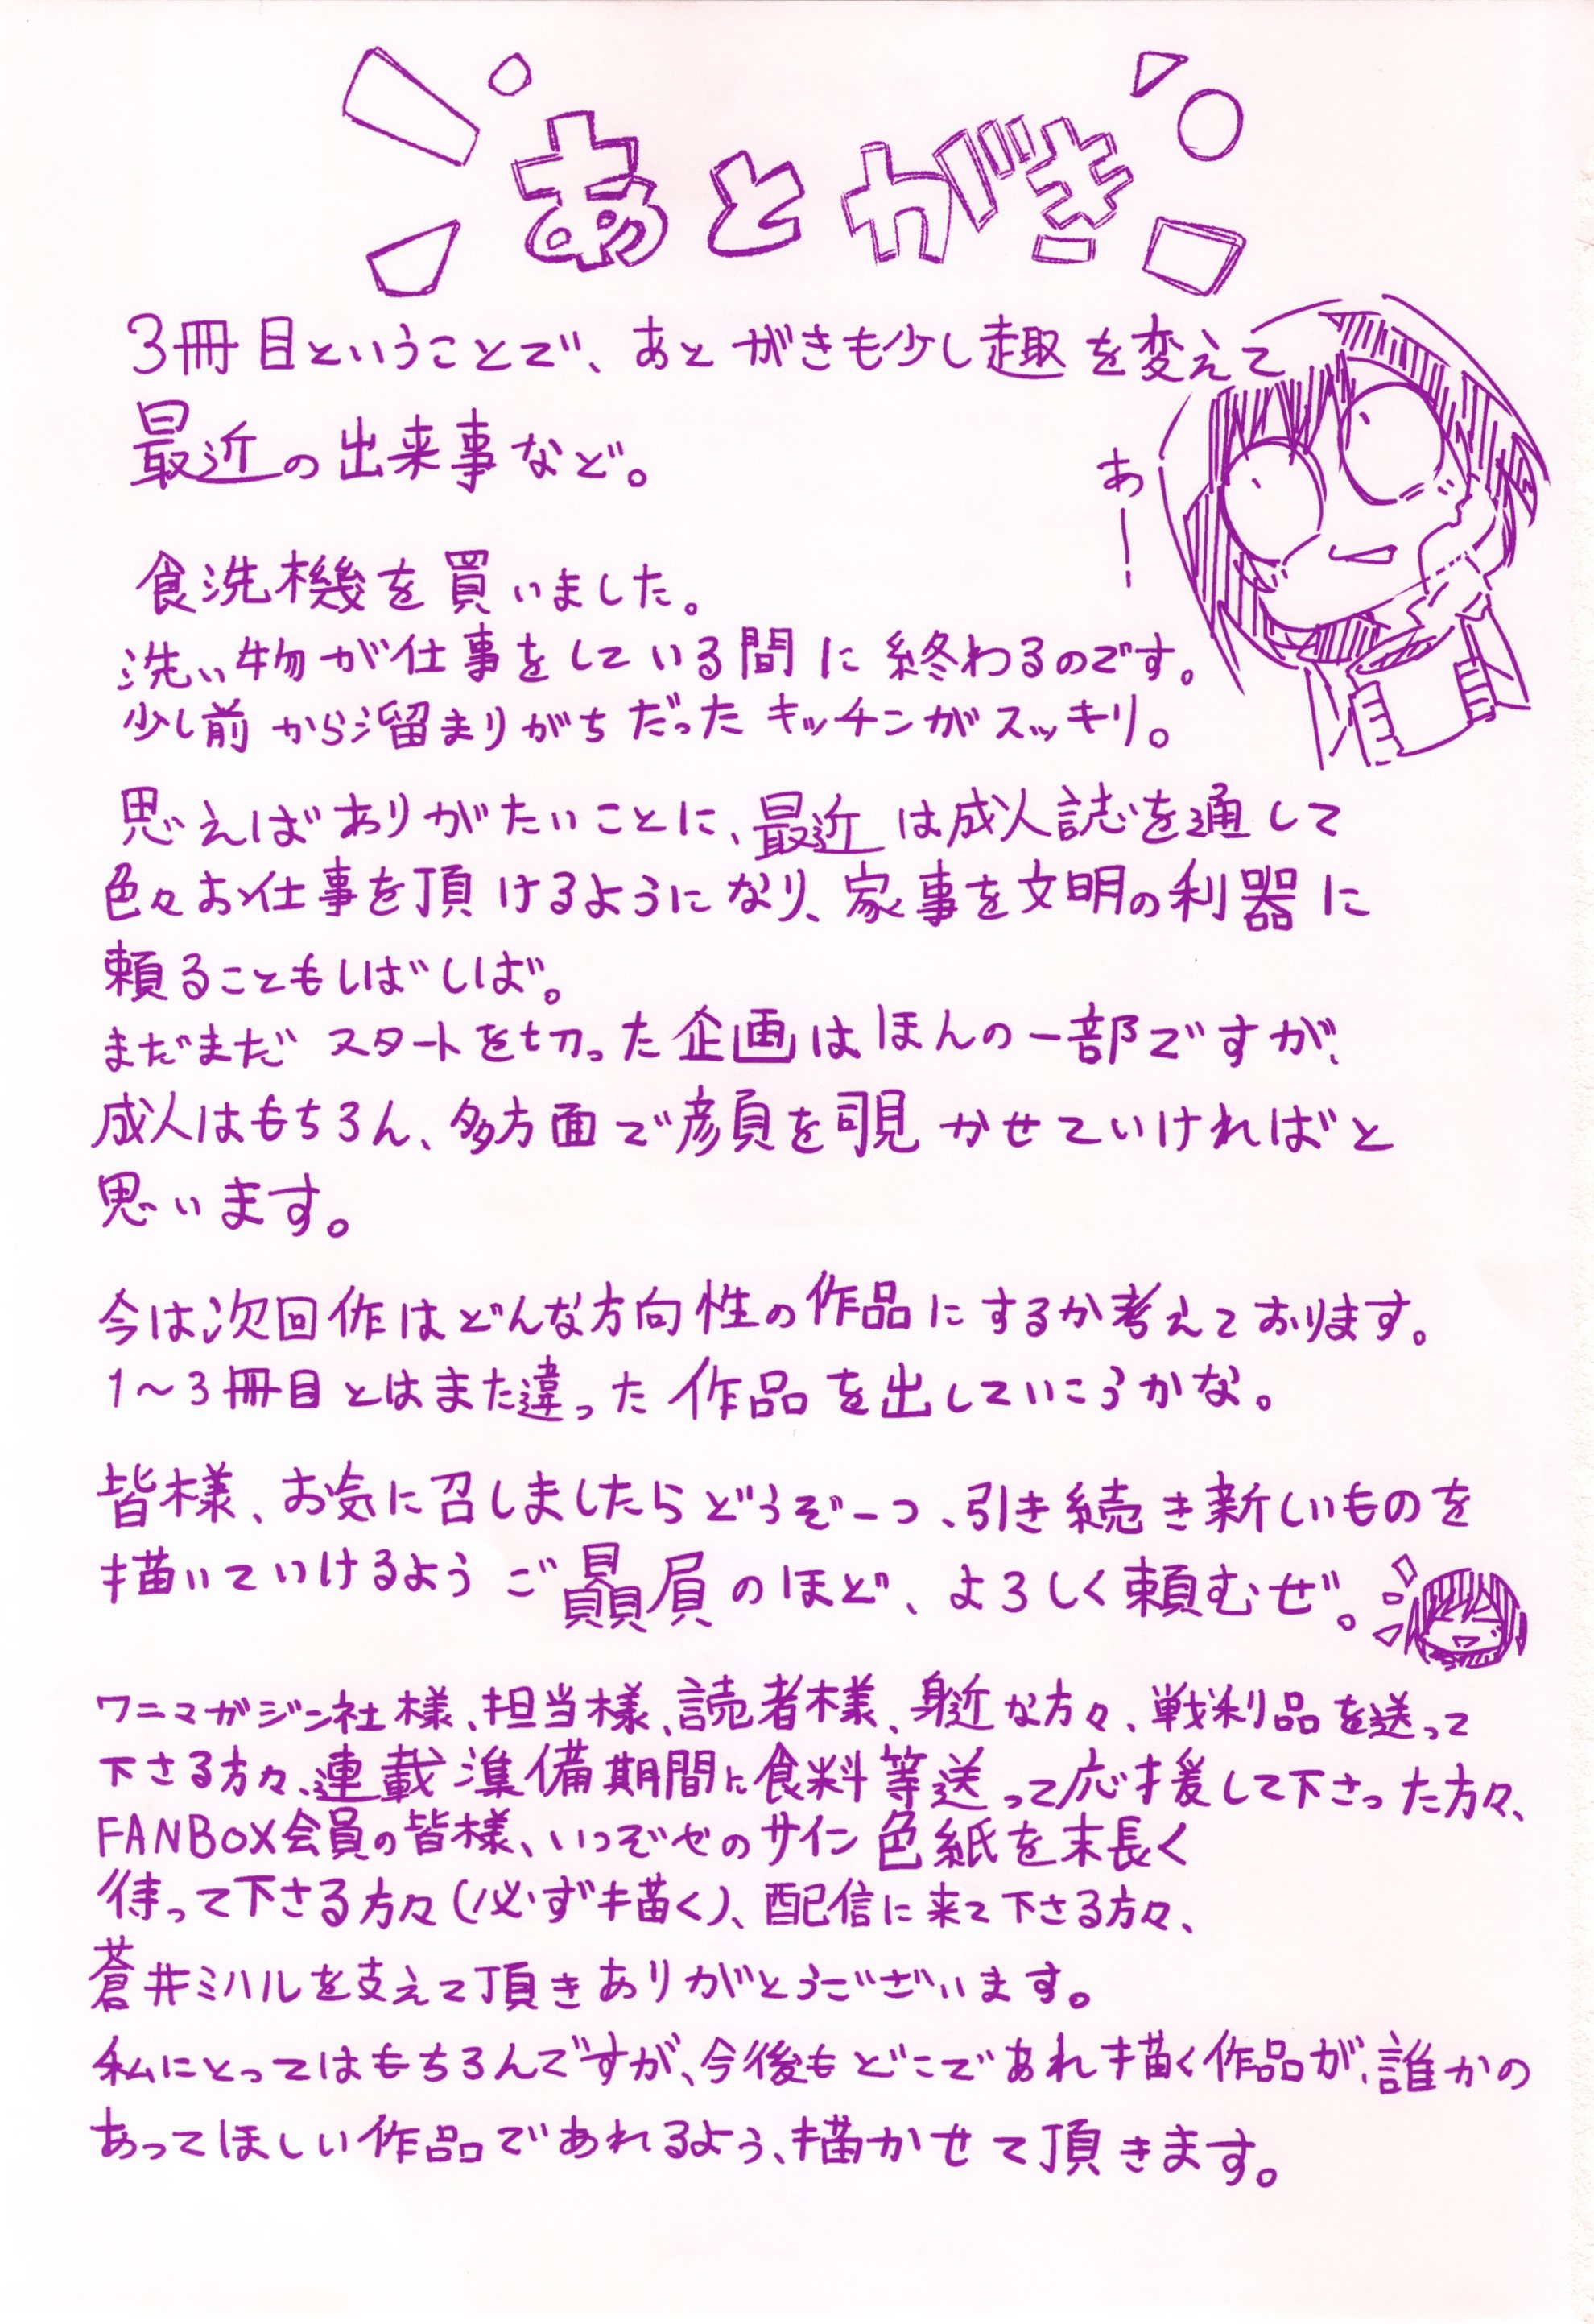 あとがき
3冊目ということで、あとがきも少し趣を変えて
最近の出来事など。
あー
食洗機を買いました。
洗い物が仕事をしている間に終わるのです。
少し前から溜まりがちだったキッチンがスッキリ。
思えばありがたいことに、最近は成人誌を通して
色々お仕事を頂けるようになり、家事を文明の利器に
頼ることもしばしば。
まだまだスタートを切った企画はほんの一部ですが、
成人はもちろん、多方面で彦頁を覗かせていければと
思います。
今は次回作はどんな方向性の作品にするか考えております。
1～3冊目とはまた違った作品を出していこうかな。
皆様、お気に召しましたらどうぞ一つ、引き続き新しいものを
描いていけるようご贔屓のほど、よろしく頼むぜ。
ワニマガジン社様、担当様、読者様、身近な方々、戦利品を送って
下さる方々、連載準備期間に食料等送って応援して下さった方々、
FANBOX会員の皆様、いつぞやのサイン色紙を末長く
待って下さる方々(必ず描く)、配信に来て下さる方々、
蒼井ミハルを支えて頂きありがとうございます。
私にとってはもちろんですが、今後もどこであれ描く作品が、誰かの
あってほしい作品であれるよう、描かせて頂きます。